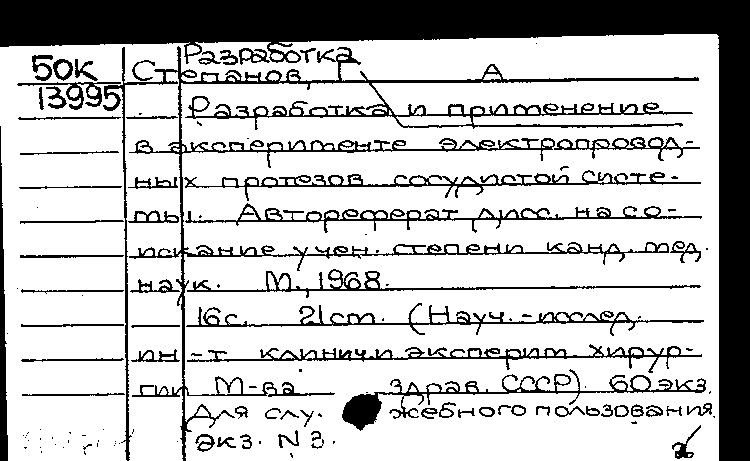 Разработка
50к Степанов, Г А
13995 Разработка и применение
в эксперименте электропровод-
ных протезов сосудистой систе-
мы. Автореферат дисс. на со-
искание учен. степени канд. мед.
наук. М., 1968.
16с. 21 cm. (Науч.-исслед.
ин-т клинич. и эксперим. хирур-
гии М-ва здрав. СССР). 60 экз.
Для слу. жебного пользования
экз. N 3.